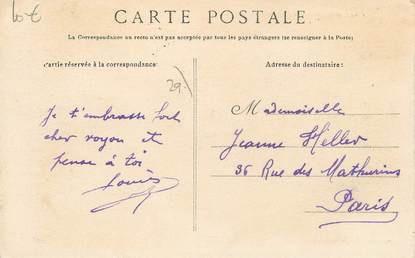 60€
CARTE POSTALE
La Correspondance au recto n'est pas acceptée par tous les pays étrangers (se renseigner à la Poste)
Partie réservée à la correspondance:
Adresse du destinataire:
29.
Je t'embrasse fort
cher voyou et
pense à toi
Louis
Mademoiselle
Jeanne Heller
36 Rue des Mathurins
Paris